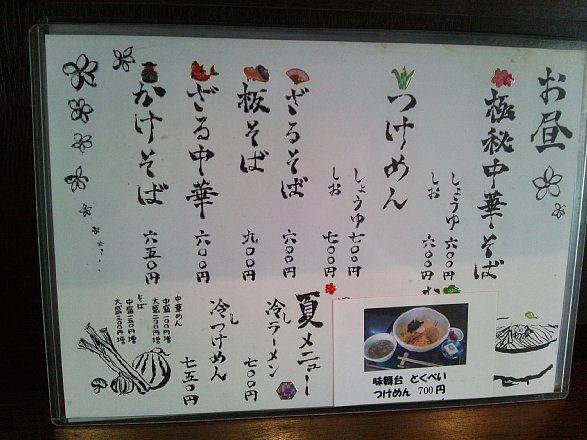 お昼
極秘中華そば
しょうゆ 六〇〇円
しお 六〇〇円
つけめん
しょうゆ 七〇〇円
しお 七〇〇円
ざるそば 六〇〇円
板そば 九〇〇円
ざる中華 六〇〇円
かけそば 六五〇円
夏メニュー
冷しラーメン 七〇〇円
冷しつけめん 七五〇円
中華めん
中盛一〇〇円増
大盛二〇〇円増
そば
中盛一五〇円増
大盛三〇〇円増
味舞台 とくべい
つけめん 700円